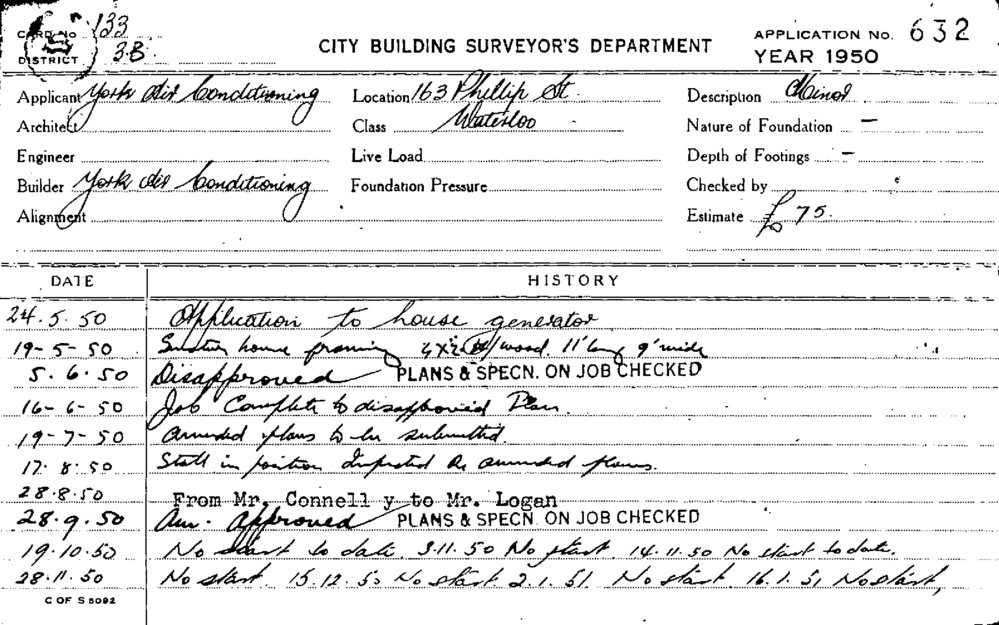 CARD No 133
DISTRICT 3B
CITY BUILDING SURVEYOR'S DEPARTMENT
APPLICATION No. 632
YEAR 1950
Applicant York Air Conditioning
Location 163 Phillip St.
Description Minor
Architect
Class Waterloo
Nature of Foundation —
Engineer
Live Load
Depth of Footings —
Builder York Air Conditioning
Foundation Pressure
Checked by
Alignment
Estimate £75.
DATE HISTORY
24.5.50 Application to house generator
19-5-50 house framing wood. 11' long 9' wide
5.6.50 Disapproved PLANS & SPECN. ON JOB CHECKED
16-6-50 Job Complete to disapproved Plan.
19-7-50 amended plans to be submitted.
17.8.50 Still in position Inspected Re amended plans.
28.8.50 From Mr. Connell y to Mr. Logan
28.9.50 Am. Approved PLANS & SPECN. ON JOB CHECKED
19.10.50 No start to date. 3.11.50 No start. 14.11.50 No start to date.
28.11.50 No start. 15.12.50 No start 2.1.51. No start. 16.1.51 No start,
C OF S 5092